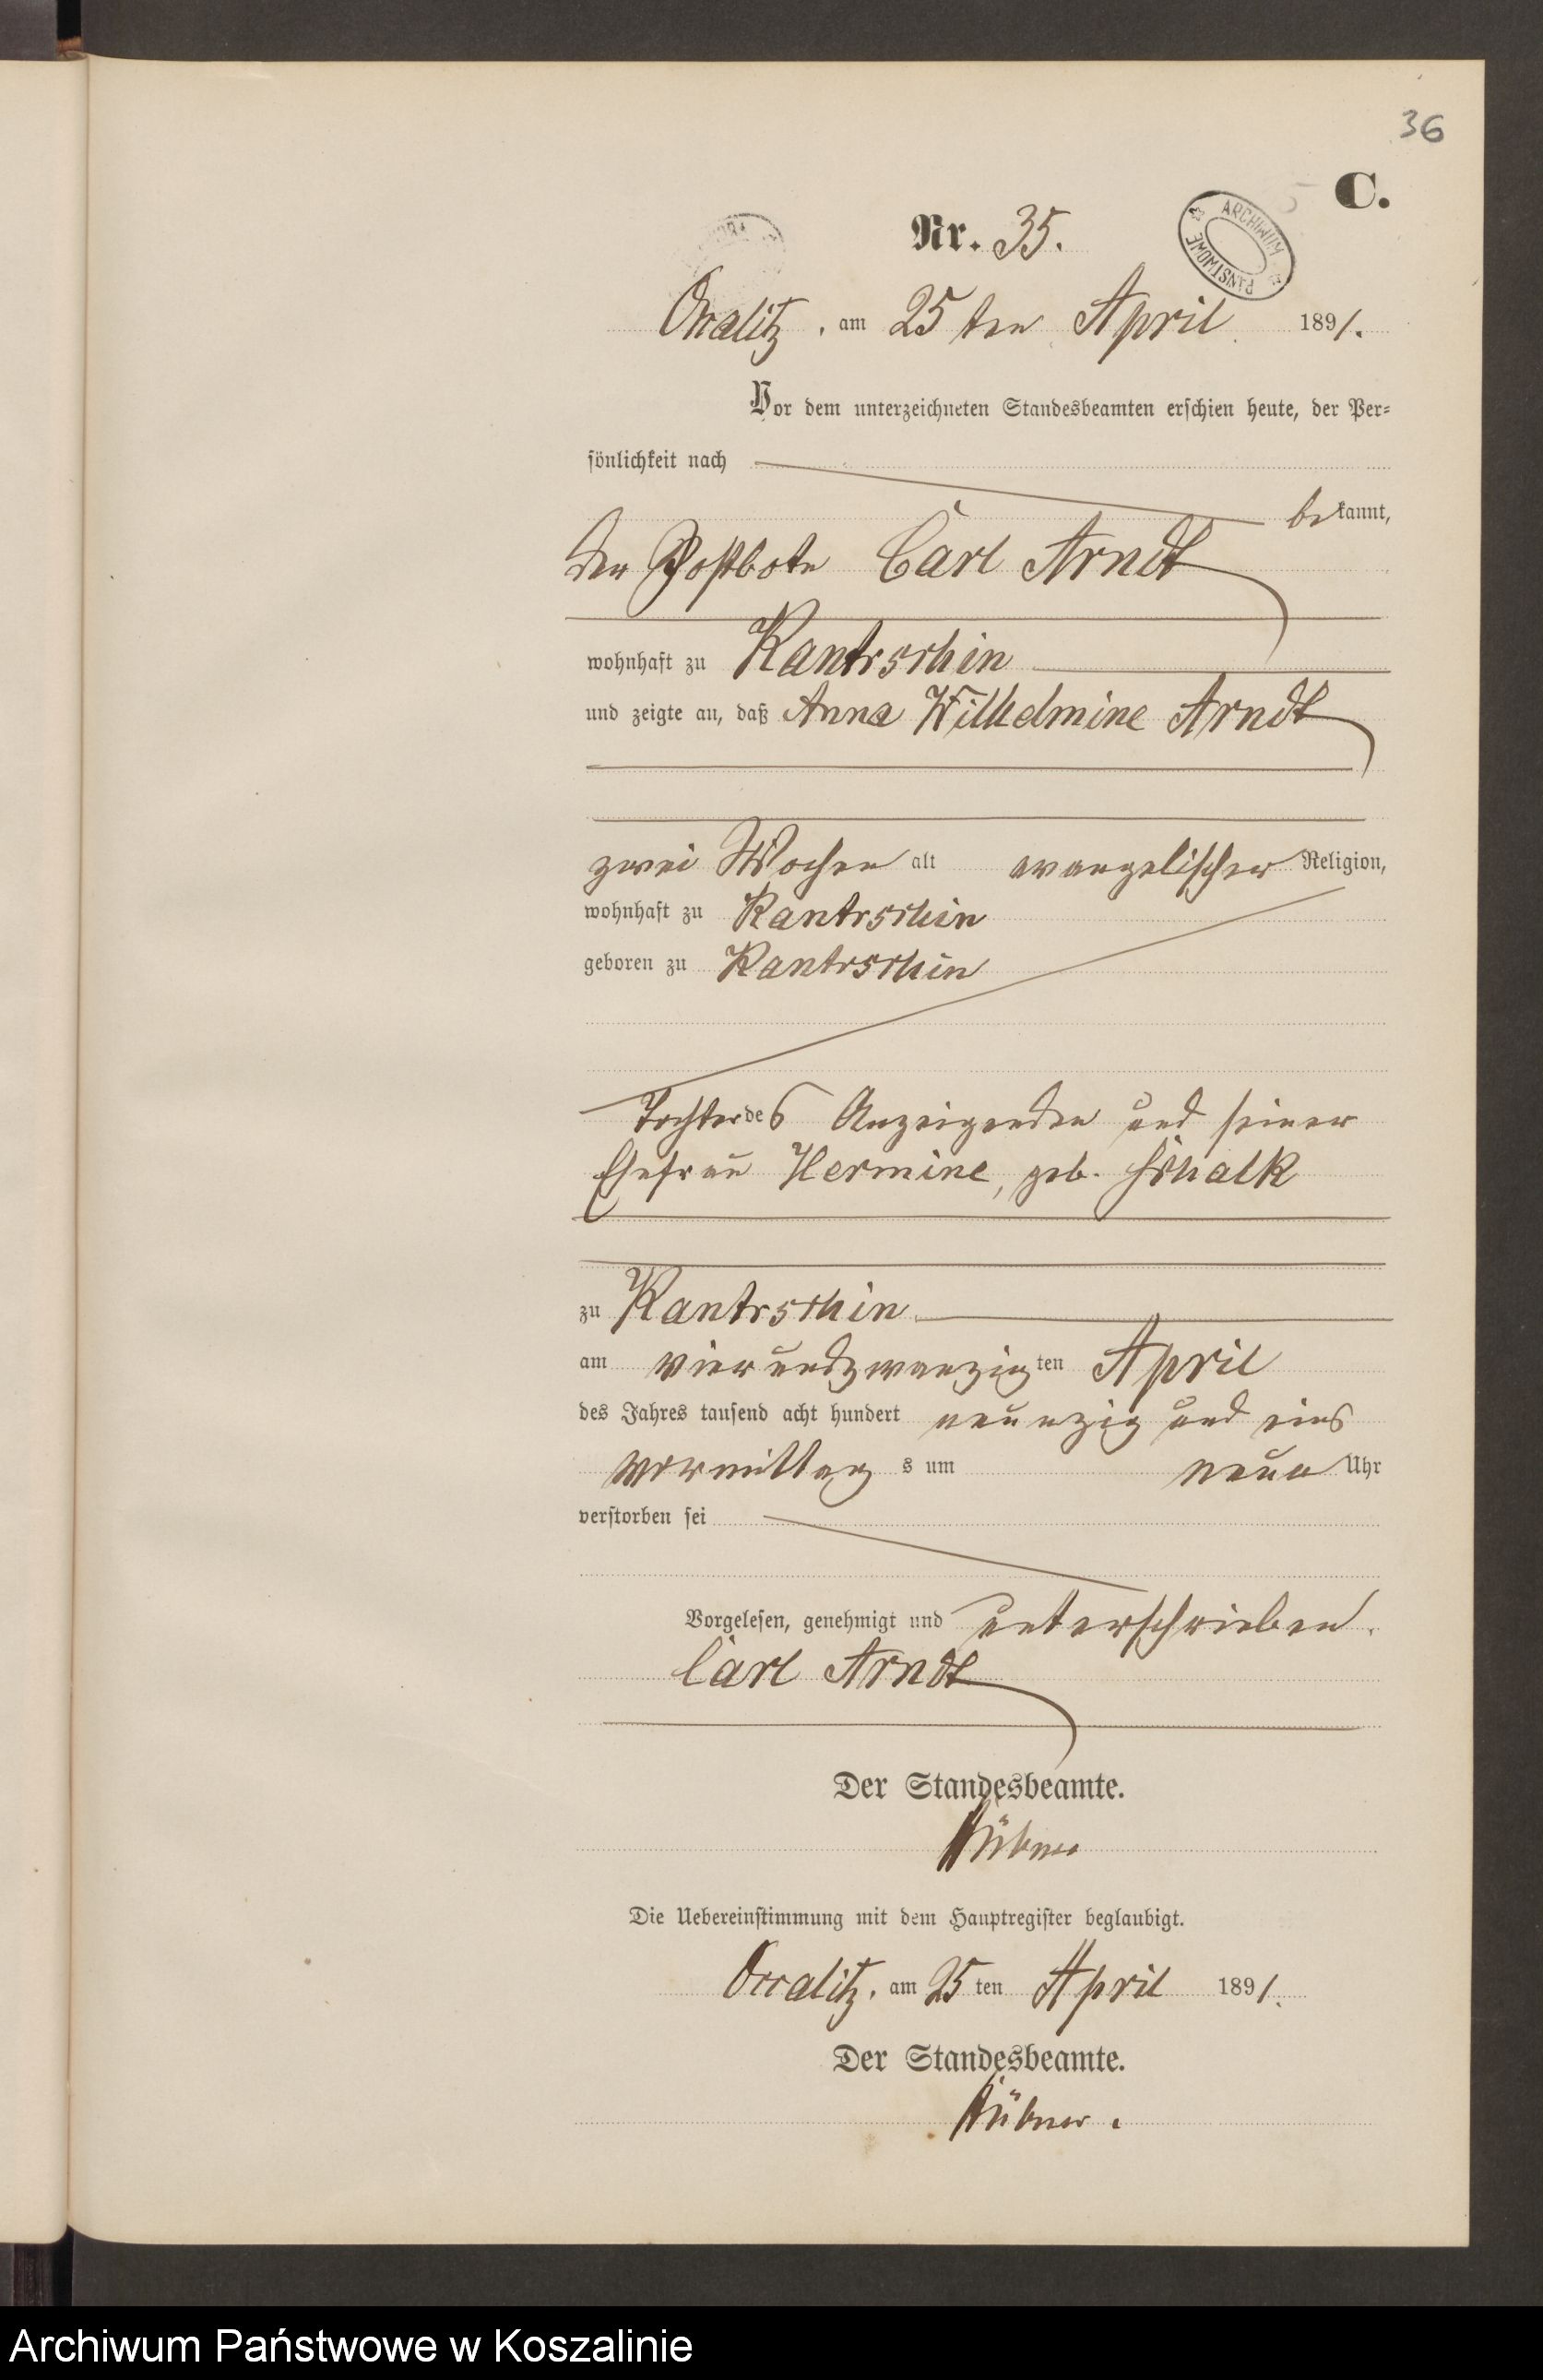 36
C.
Nr. 35.
ARCHIWUM PAŃSTWOWE
Occalitz, am 25 ten April 1891.
Vor dem unterzeichneten Standesbeamten erschien heute, der Per-
sönlichkeit nach
bekannt,
der Postbote Carl Arndt
wohnhaft zu Kantrschin
und zeigte an, daß Anna Wilhelmine Arndt
zwei Wochen alt evangelischer Religion,
wohnhaft zu Kantrschin
geboren zu Kantrschin
Tochter des Anzeigenden und seiner
Ehefrau Hermine, geb. Schalk
zu Kantrschin
am vierundzwanzigten April
des Jahres tausend acht hundert neunzig und eins
Vormittags um neun Uhr
verstorben sei
Vorgelesen, genehmigt und unterschrieben.
Carl Arndt
Der Standesbeamte.
Hübner
Die Uebereinstimmung mit dem Hauptregister beglaubigt.
Occalitz, am 25 ten April 1891.
Der Standesbeamte.
Hübner.
Archiwum Państwowe w Koszalinie